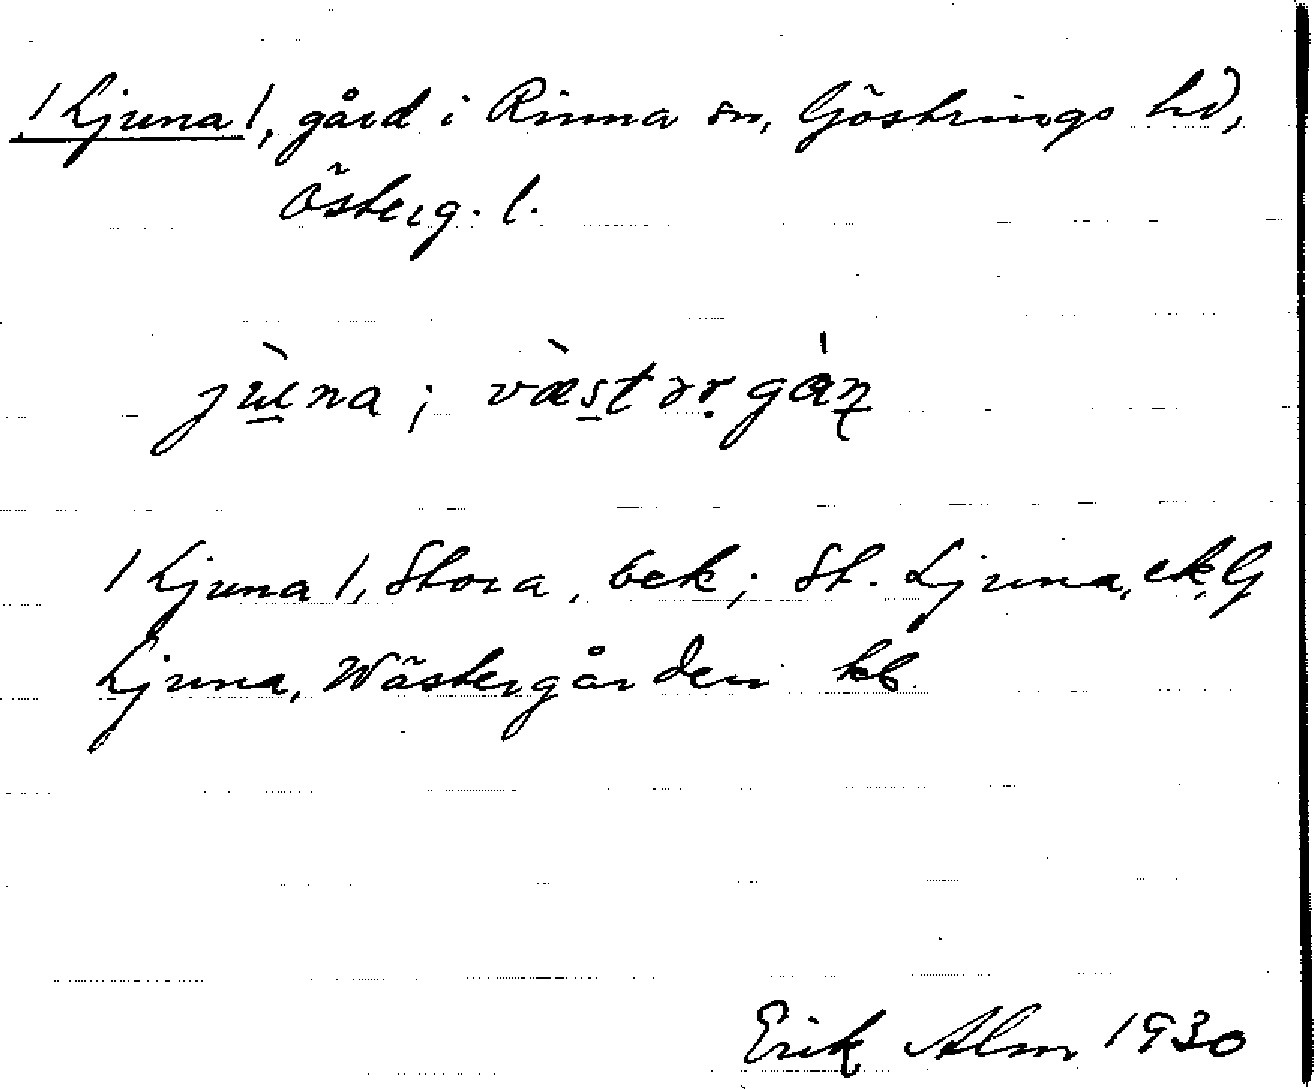 /Ljuna/, gård i Rinna sn, Göstrings hd,
Österg. l.
jùna; væ̀stərgàɳ
/Ljuna/, Stora, bek; St. Ljuna, ek, G
Ljuna, Wästergården kb.
Erik Alm 1930